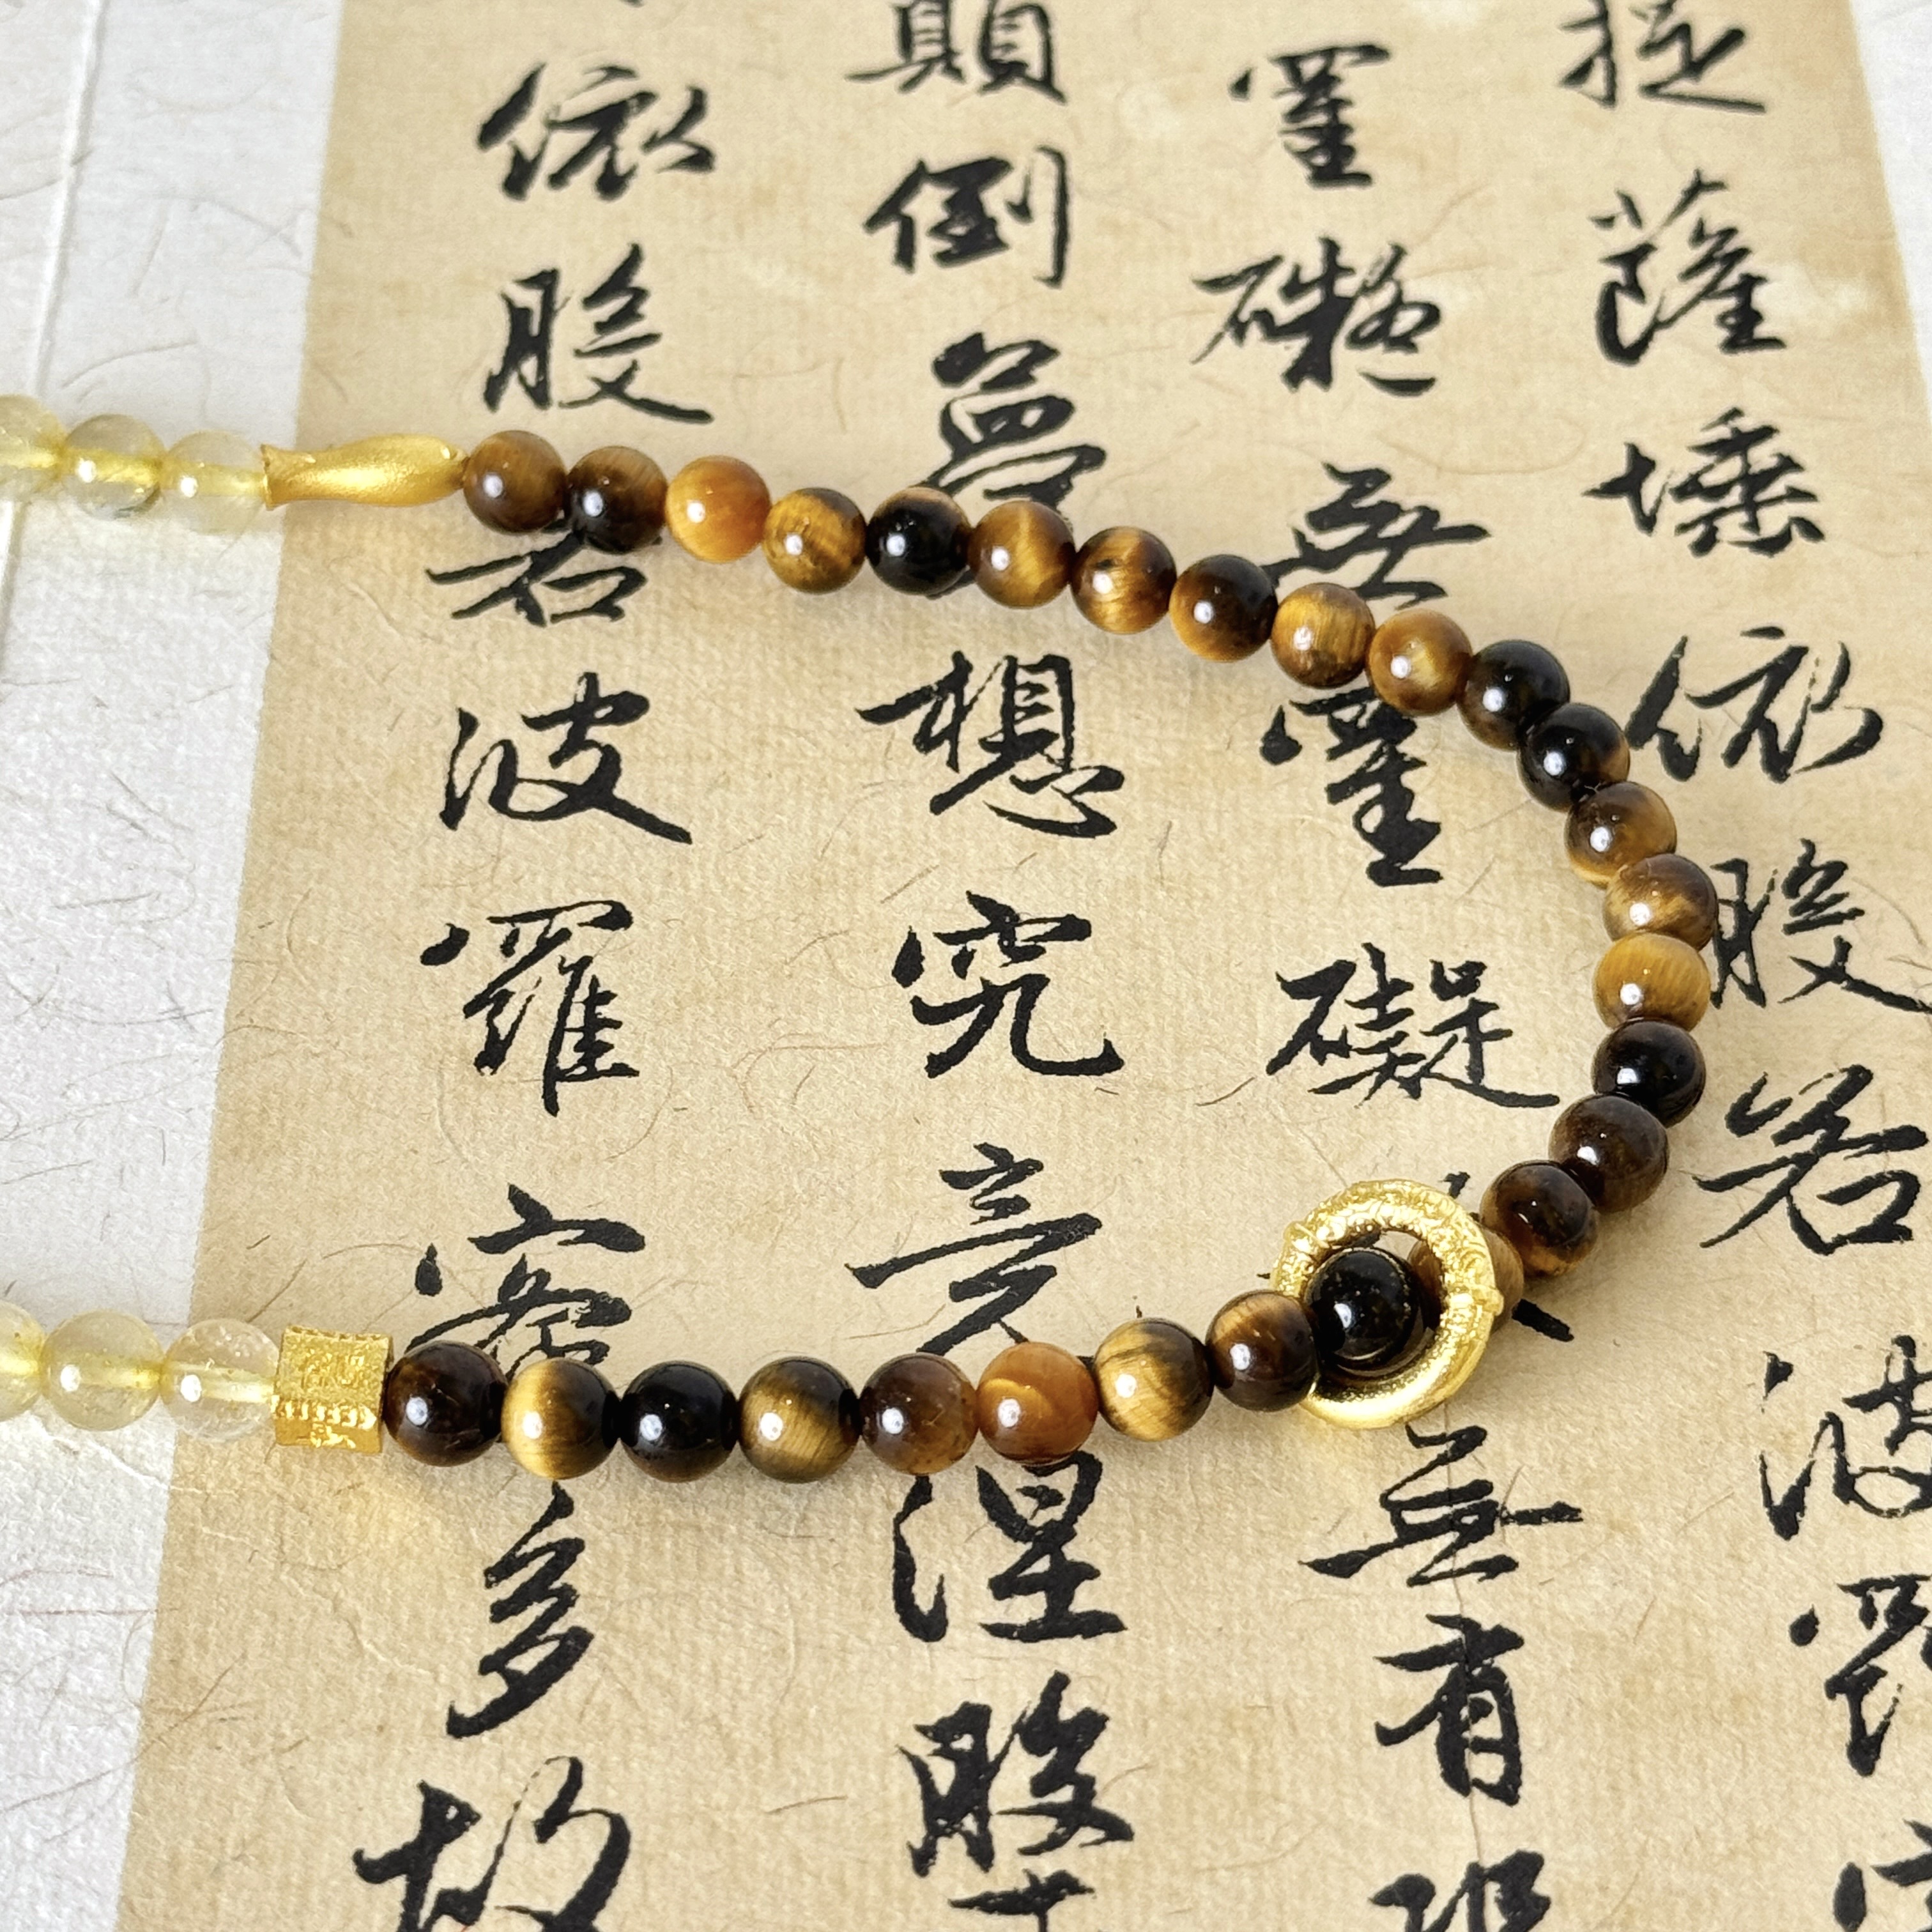 提薩埵依般若波羅
罣礙無罣礙無有
顛倒夢想究竟涅槃
依般若波羅蜜多故